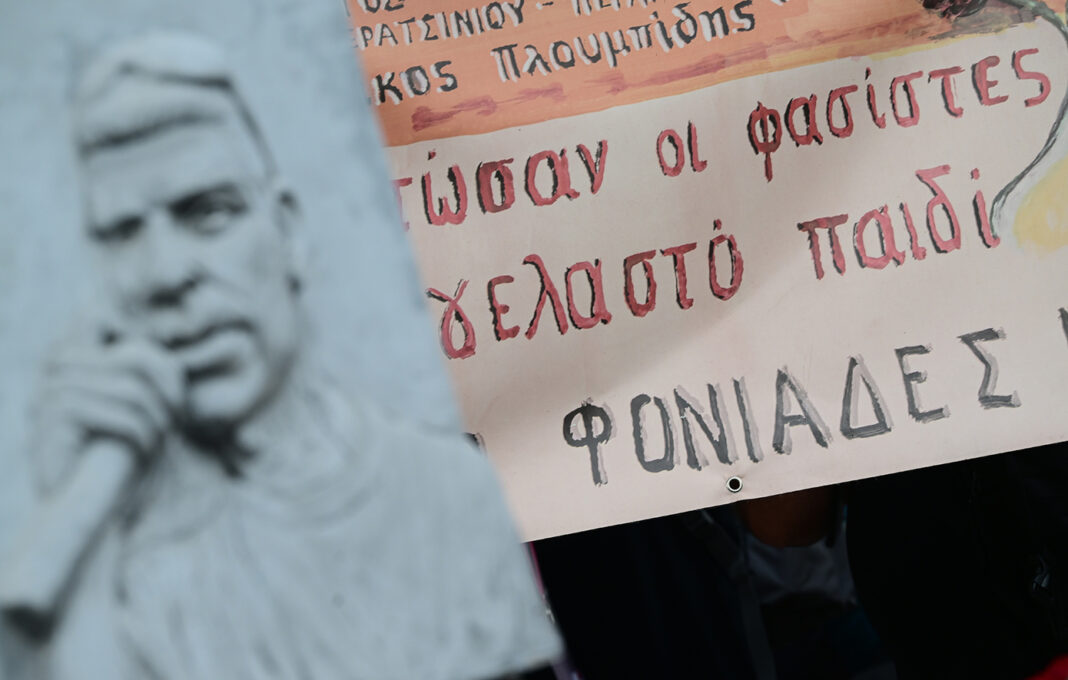 ΡΑΤΣΙΝΙΟΥ -
ΚΟΣ Πλουμπίδης
τώσαν οι φασίστες
γελαστό παιδί
ΦΟΝΙΑΔΕΣ